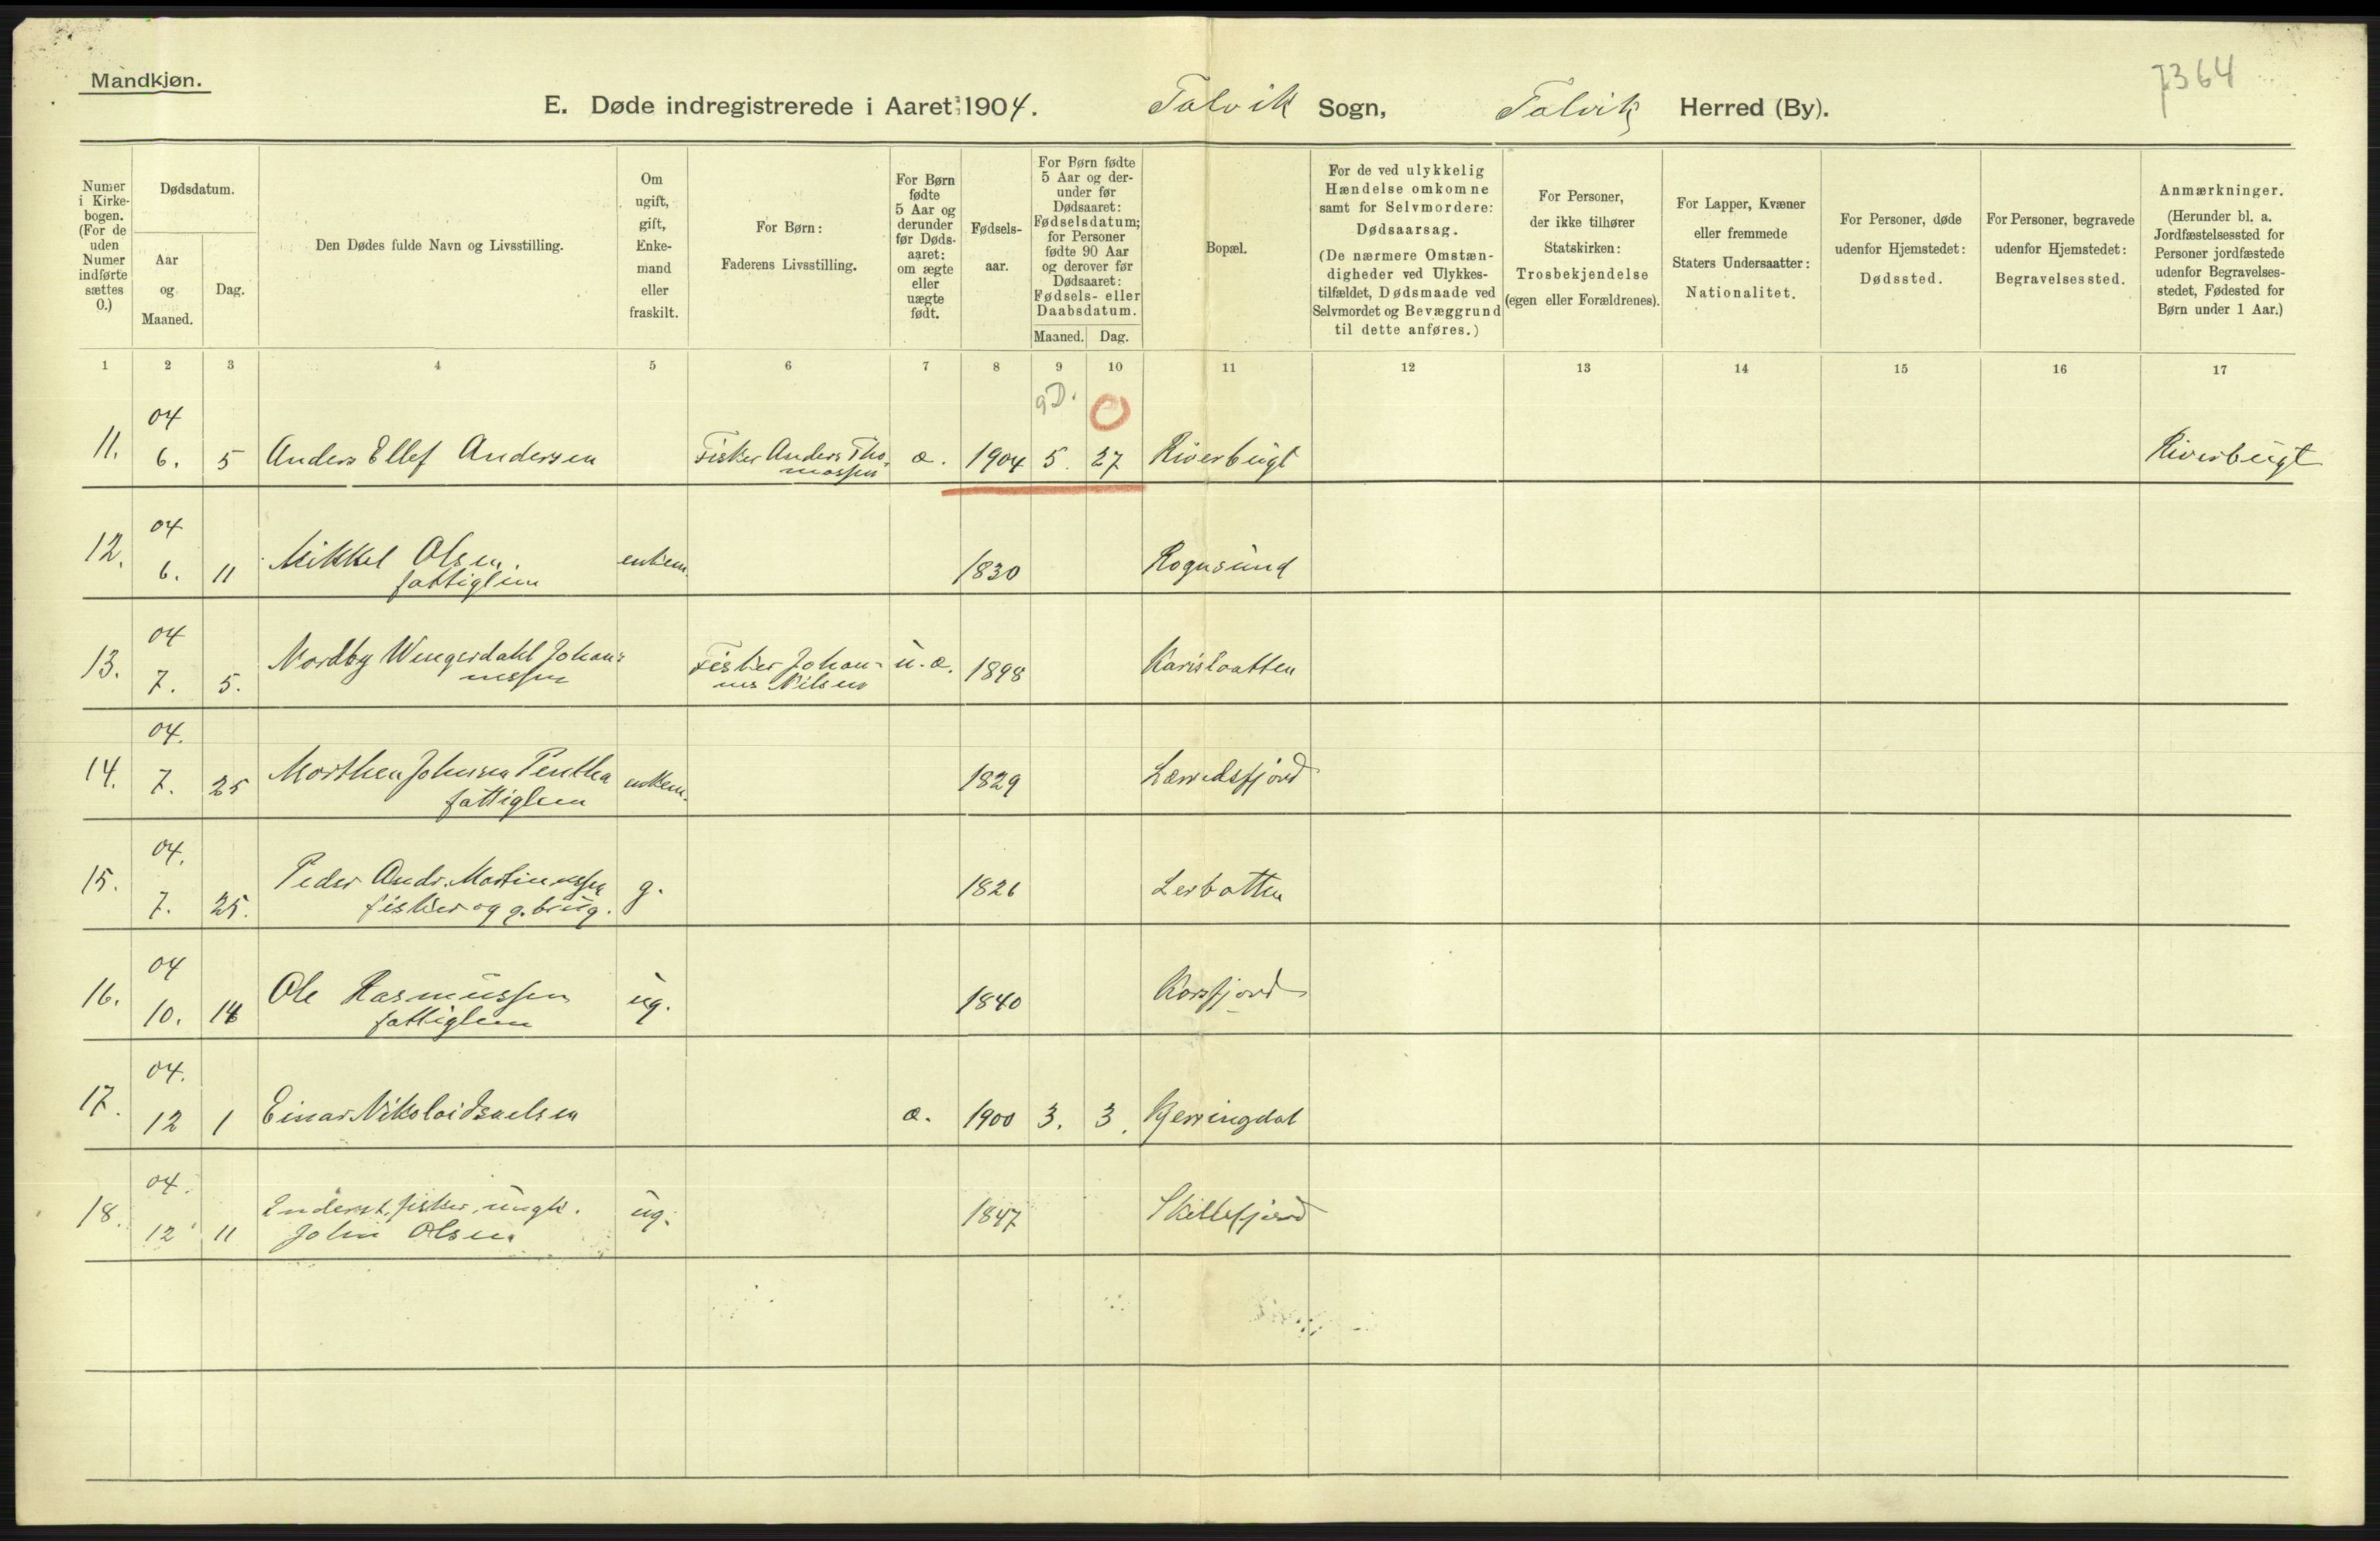 Mandkjøn.
7364
E. Døde indregistrerede i Aaret 1904. Talvik Sogn, Talvik Herred (By).
Numer i Kirkebogen. (For de uden Numer indførte sættes 0.)
Dødsdatum.
Aar og Maaned.
Dag.
Den Dødes fulde Navn og Livsstilling.
Om ugift, gift, Enkemand eller fraskilt.
For Børn:
Faderens Livsstilling.
For Børn fødte 5 Aar og derunder før Dødsaaret: om ægte eller uægte født.
Fødselsaar.
For Børn fødte 5 Aar og derunder før Dødsaaret: Fødselsdatum; for Personer fødte 90 Aar og derover før Dødsaaret: Fødsels- eller Daabsdatum.
Maaned. Dag.
Bopæl.
For de ved ulykkelig Hændelse omkomne samt for Selvmordere: Dødsaarsag.
(De nærmere Omstændigheder ved Ulykkestilfældet, Dødsmaade ved Selvmordet og Bevæggrund til dette anføres.)
For Personer, der ikke tilhører Statskirken: Trosbekjendelse (egen eller Forældrenes).
For Lapper, Kvæner eller fremmede Staters Undersaatter: Nationalitet.
For Personer, døde udenfor Hjemstedet: Dødssted.
For Personer, begravede udenfor Hjemstedet: Begravelsessted.
Anmærkninger.
(Herunder bl. a. Jordfæstelsessted for Personer jordfæstede udenfor Begravelsesstedet, Fødested for Børn under 1 Aar.)
1 2 3 4 5 6 7 8 9 10 11 12 13 14 15 16 17
9D. 0
04
11. 6. 5 Anders Ellef Andersen Fisker Anders Tho- æ. 1904 5. 27 Riverbugt Riverbugt
massen
04
12. 6. 11 Mikkel Olsen. enkem. 1830 Rognsund
fattiglem
04
13. 7. 5. Nordby Wengerdahl Johan- Fisker Johan- u.æ. 1898
nessen nes Nilsen
04.
14. 7. 25 Morthen Johnsen Pentha enkem. 1829
fattiglem
04.
15. 7. 25. Peder Andr. Martinussen g. 1826 Lerbotten
fisker og g.brug.
04
16. 10. 14 Ole Rasmussen ug. 1840 Korsfjord
fattiglem
04.
17. 12 1 Einar Nikolai æ. 1900 3. 3. Kjerringdal
04.
18. 12 11 fisker, ungk. ug. 1847 Skillefjord
John Olsen